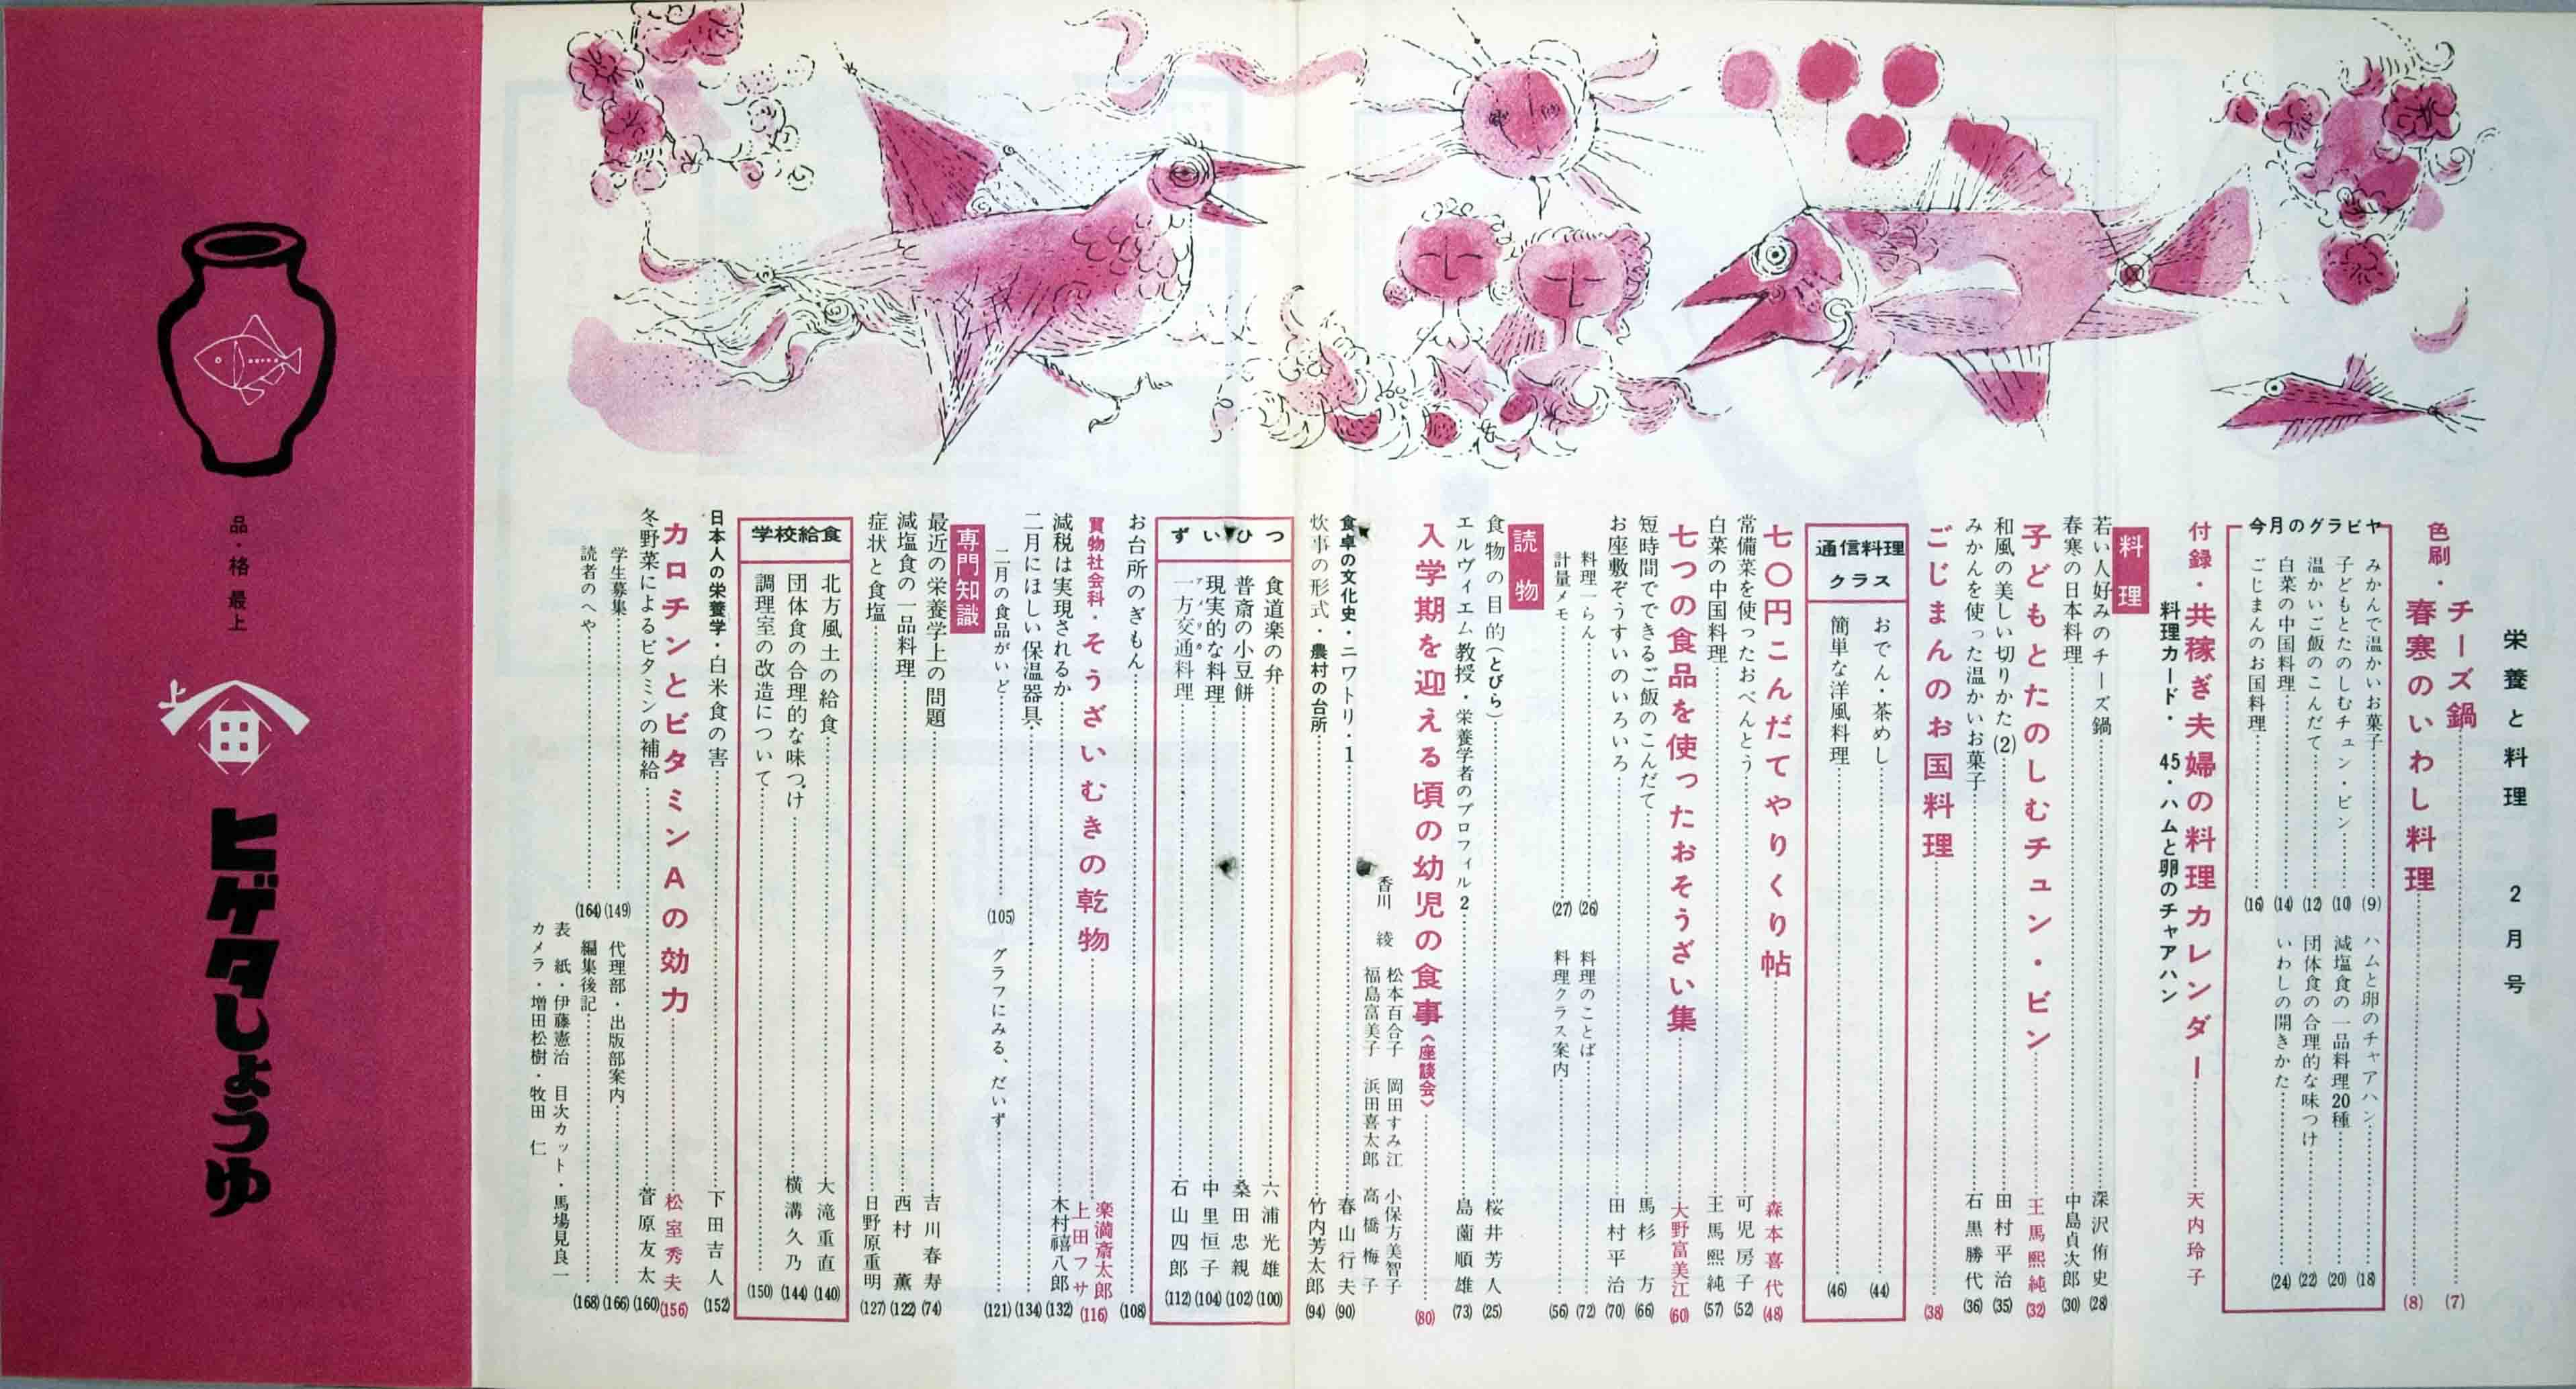 栄養と料理 2月号
色刷・チーズ鍋 (7)
春寒のいわし料理 (8)
今月のグラビヤ
みかんで温かいお菓子 (9)
子どもとたのしむチュン・ビン (10)
温かいご飯のこんだて (12)
白菜の中国料理 (14)
ごじまんのお国料理 (16)
ハムと卵のチャアハン (18)
減塩食の一品料理20種 (20)
団体食の合理的な味つけ (22)
いわしの開きかた (24)
付録・共稼ぎ夫婦の料理カレンダー 天内玲子
料理カード・45・ハムと卵のチャアハン
料理
若い人好みのチーズ鍋 深沢侑史 (28)
春寒の日本料理 中島貞次郎 (30)
子どもとたのしむチュン・ビン 王馬熙純 (32)
和風の美しい切りかた(2) 田村平治 (35)
みかんを使った温かいお菓子 石黒勝代 (36)
ごじまんのお国料理 (38)
通信料理クラス
おでん・茶めし (44)
簡単な洋風料理 (46)
七〇円こんだてやりくり帖 森本喜代 (48)
常備菜を使ったおべんとう 可児房子 (52)
白菜の中国料理 王馬熙純 (57)
七つの食品を使ったおそうざい集 大野富美江 (60)
短時間でできるご飯のこんだて 馬杉方 (66)
お座敷ぞうすいのいろいろ 田村平治 (70)
料理一らん (26)
料理のことば (72)
計量メモ (27)
料理クラス案内 (56)
読物
食物の目的(とびら) 桜井芳人 (25)
エルヴィエム教授・栄養学者のプロフィル2 島薗順雄 (73)
入学期を迎える頃の幼児の食事《座談会》 (80)
香川綾 松本百合子 岡田すみ江 小保方美智子
福島富美子 浜田喜太郎 高橋梅子
食卓の文化史・ニワトリ・1 春山行夫 (90)
炊事の形式・農村の台所 竹内芳太郎 (94)
ずいひつ
食道楽の弁 六浦光雄 (100)
普斎の小豆餅 桑田忠親 (102)
現実的な料理 中里恒子 (104)
一方交通料理 石山四郎 (112)
お台所のぎもん (108)
買物社会科・そうざいむきの乾物 楽満斎太郎 上田フサ (116)
減税は実現されるか 木村禧八郎 (132)
二月にほしい保温器具 (134)
二月の食品がいど (105)
グラフにみる、だいず (121)
専門知識
最近の栄養学上の問題 吉川春寿 (74)
減塩食の一品料理 西村薫 (122)
症状と食塩 日野原重明 (127)
学校給食
北方風土の給食 大滝重直 (140)
団体食の合理的な味つけ 横溝久乃 (144)
調理室の改造について (150)
日本人の栄養学・白米食の害 下田吉人 (152)
カロチンとビタミンAの効力 松室秀夫 (156)
冬野菜によるビタミンの補給 菅原友太 (160)
学生募集 (149)
代理部・出版部案内 (166)
読者のへや (164)
編集後記 (168)
表紙・伊藤憲治 目次カット・馬場見良一
カメラ・増田松樹・牧田仁
品・格 最上
上
田
ヒゲタしょうゆ